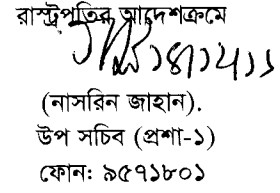 রাস্ট্রপতির আদেশক্রমে
(নাসরিন জাহান).
উপ সচিব (প্রশা-১)
ফোন: ৯৫৭১৮০১